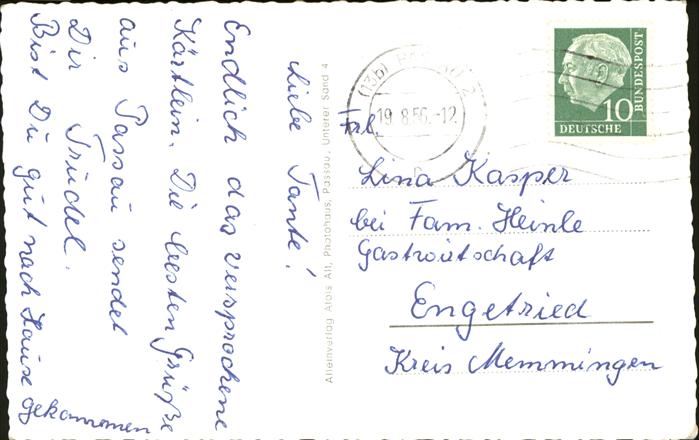 Liebe Tante!
Endlich das versprochene
Kärtlein. Die besten Grüße
aus Passau sendet
Dir Trudel.
Bist Du gut nach Hause gekommen
Alleinverlag Alois Alt, Photohaus, Passau, Unterer Sand 4
(13b) PASSAU 2
19.8.56.-12
b
10
DEUTSCHE
BUNDESPOST
Frl.
Lina Kasper
bei Fam. Heinle
Gastwirtschaft
Engetried
Kreis Memmingen